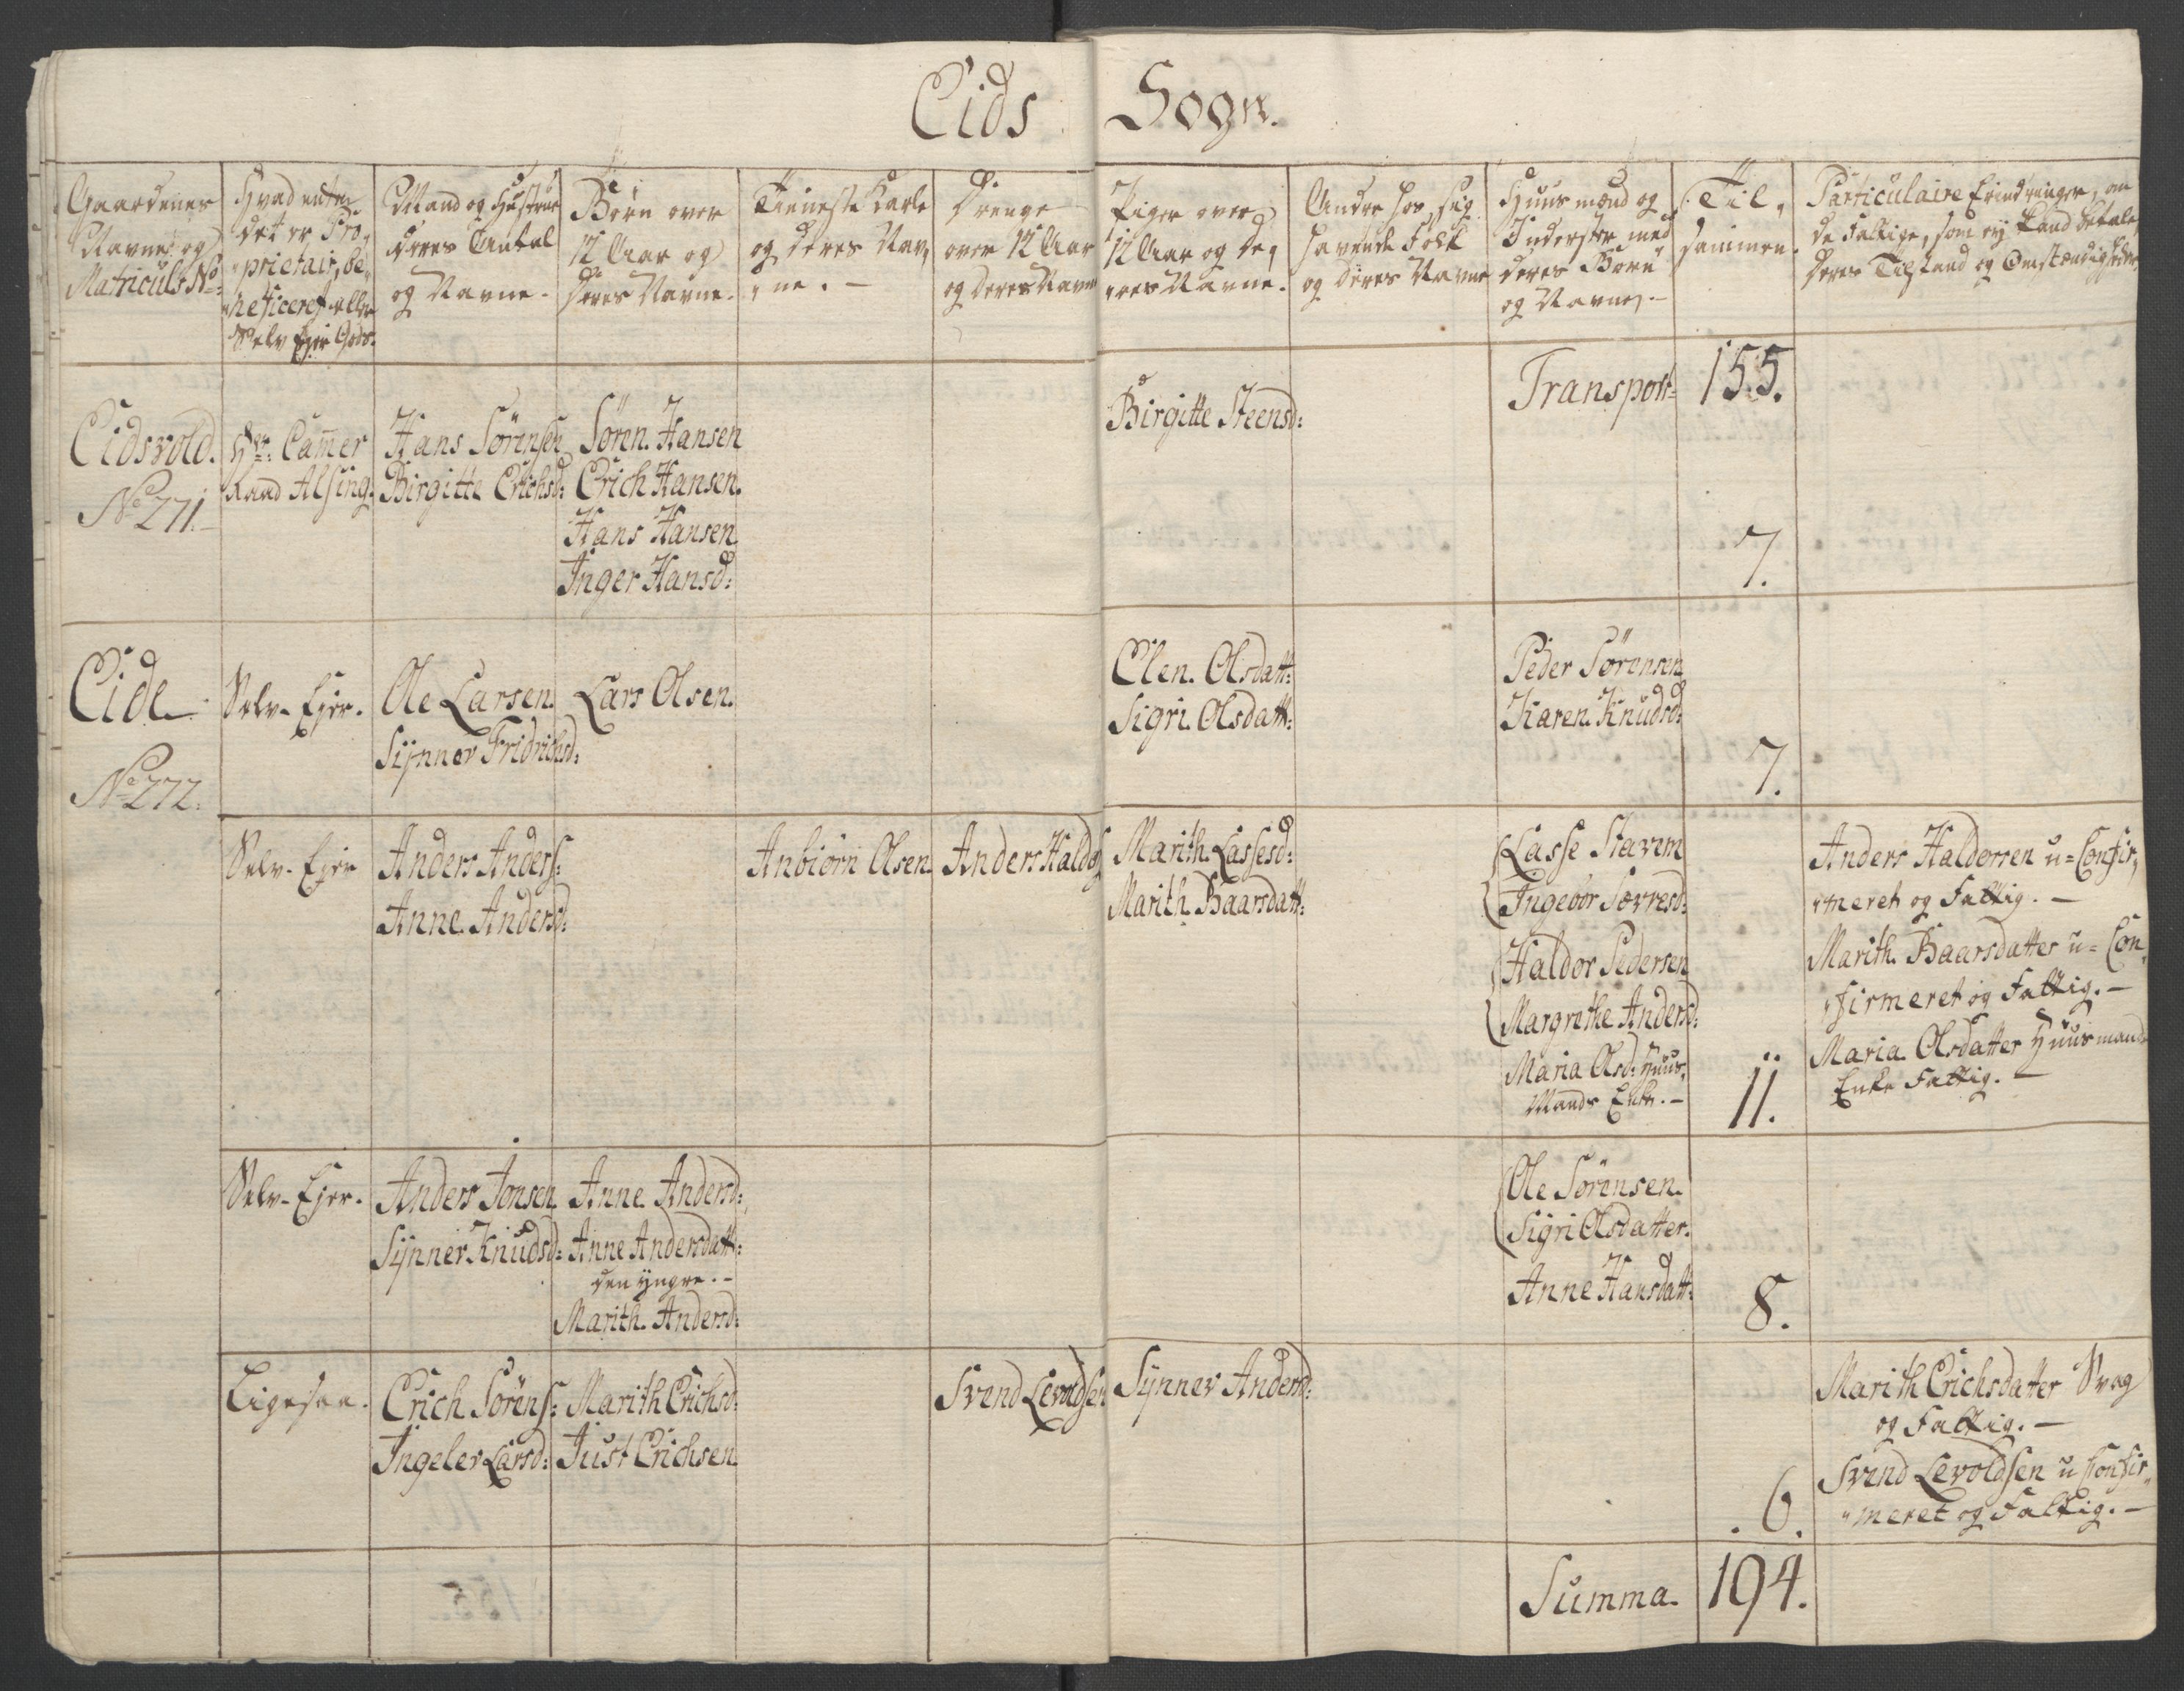 Eids Sogn.
Gaardenes
Navne og
Matriculs No:
Hvad enten
det er Pro-
prietair, be-
neficeret eller
Selv Ejer Gods.
Mand og Hustrue
deres Antal
og Navne.
Børn over
12 Aar og
deres Navne.
Tieneste Karle
og deres Nav-
ne. -
Drenge
over 12 Aar
og deres Navne
Piger over
12 Aar og de-
res Navne.
Andre hos sig
havende Folk
og deres Navne
Huusmænd og
Inderster med
deres Børn
og Navne. -
Til-
sammen.
Particulaire Erindringer, om
de Fattige, som ej kand betale,
deres Tilstand og Omstændigheder
Eidsvold.
No 271.
Hr: Cammer
Raad Alsing.
Hans Sörensen
Birgitte Erichsd:
Sören Hansen
Erich Hansen.
Hans Hansen
Inger Hansd:
Birgitte Steensd:
Transport=
155.
7.
Eide
No 272.
Selv-Ejer.
Ole Larsen.
Synnev Fridrichsd:
Lars Olsen.
Elen Olsdatt:
Sigri Olsdatt:
Peder Sörensen
Karen Knudsd:
7.
Selv-Ejer
Anders Anders:
Anne Andersd:
Anbiørn Olsen.
Anders Haldors
Marith Lassesd:
Marith Baarsdatt:
Lasse Stavem
Ingebor Sævresd:
Haldor Pedersen
Margrethe Andersd:
Maria Olsd: Huus-
Mands Enke. -
11.
Anders Haldorsen u=Confir-
meret og Fattig. -
Marith Baarsdatter u=Con-
firmeret og Fattig. -
Maria Olsdatter Huusmands
Enke Fattig. -
Selv-Ejer.
Anders Jonsen
Synnev Knudsd:
Anne Andersd:
Anne Andersdatt:
den yngre. -
Marith Andersd:
Ole Sörensen.
Sigri Olsdatter.
Anne Hansdatt:
8.
Ligesaa.
Erich Sörens:
Ingeler Larsd:
Marith Erichsd:
Just Erichsen
Svend Levoldsen
Synnev Andersd:
6.
Marith Erichsdatter Svag
og Fattig. -
Svend Levoldsen u Confir-
meret og Fattig. -
Summa.
194.